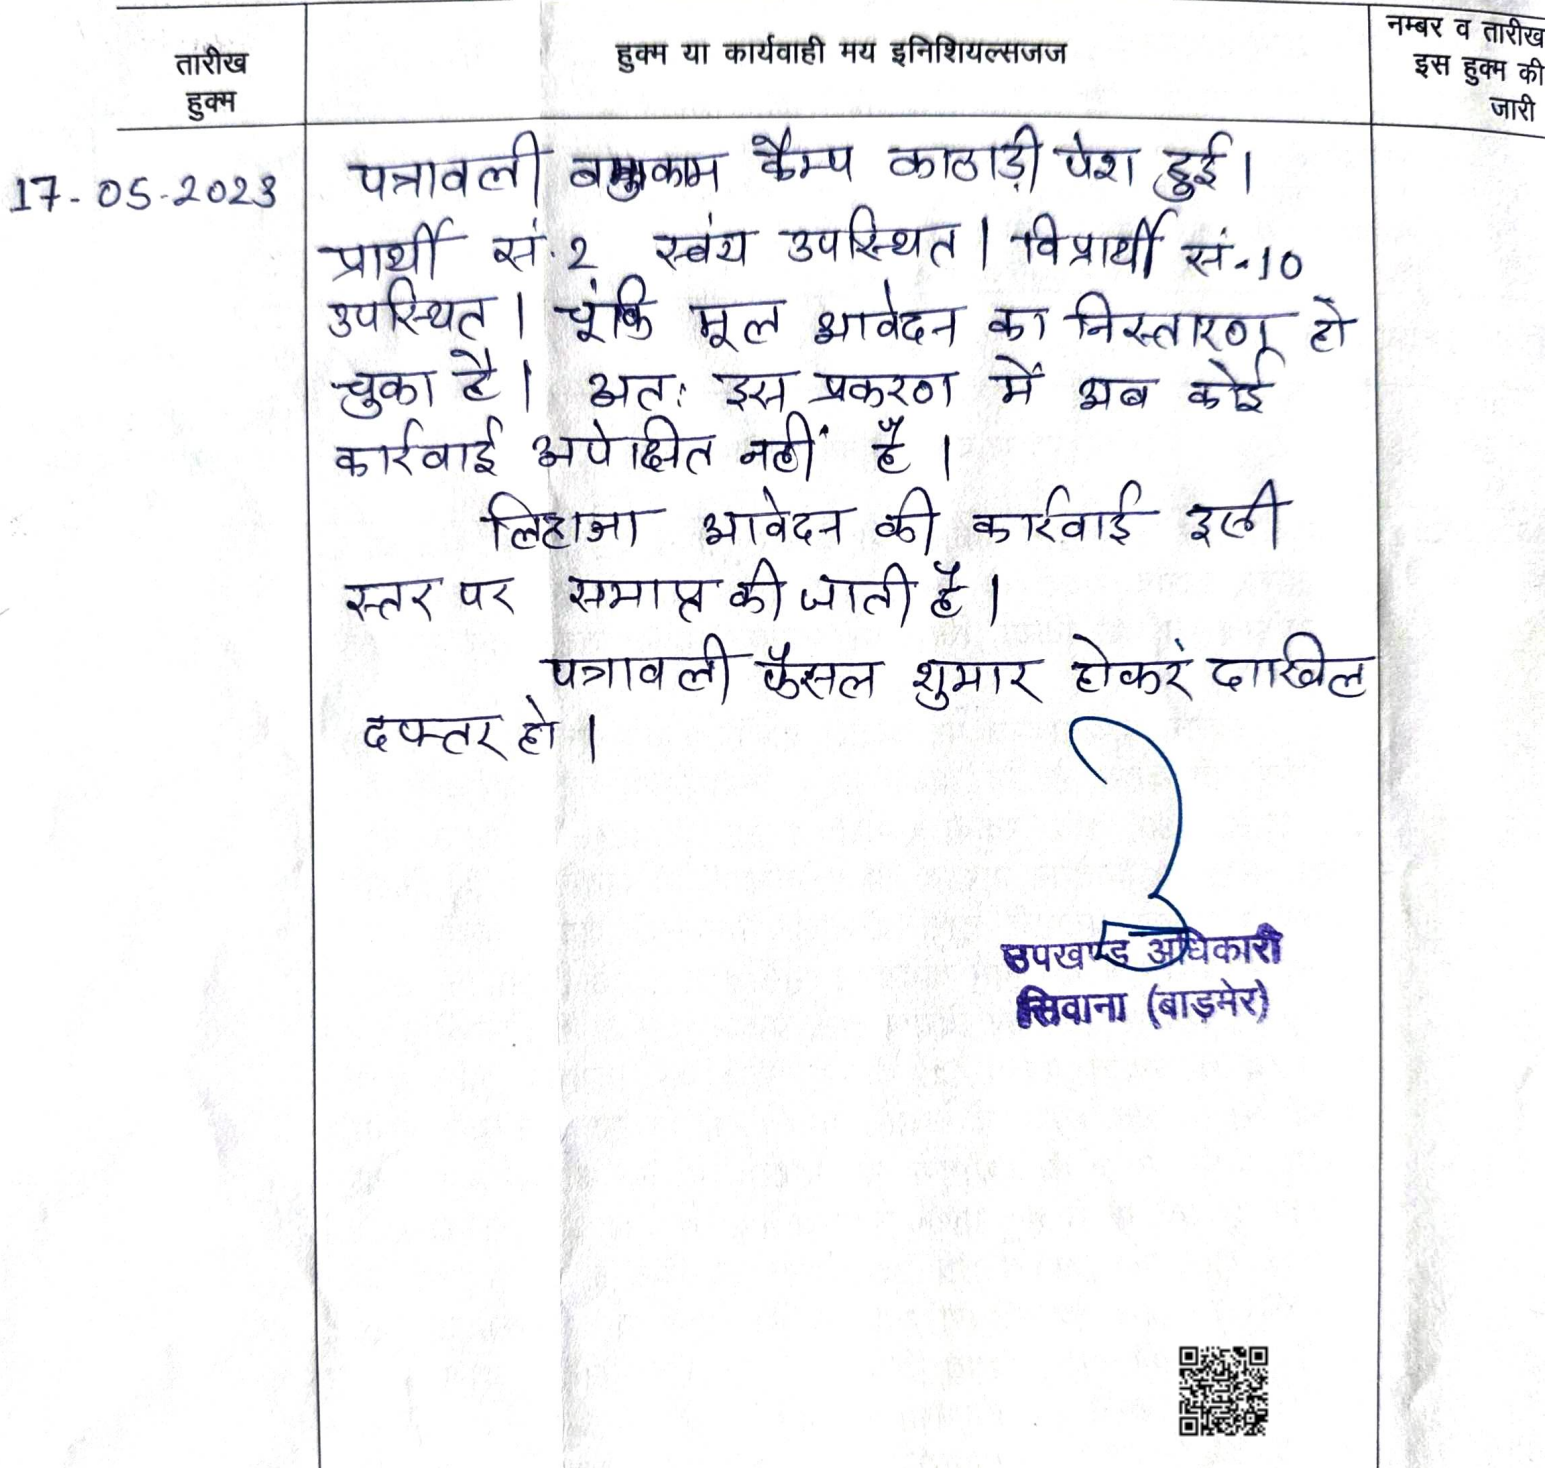 तारीख
हुक्म
हुक्म या कार्यवाही मय इनिशियल्सजज
नम्बर व तारीख
इस हुक्म की
जारी
17-05-2023
पत्रावली बमुकाम कैम्प काठाड़ी पेश हुई।
प्रार्थी सं. 2 स्वंय उपस्थित। विप्रार्थी सं. 10
उपस्थित। चूंकि मूल आवेदन का निस्तारण हो
चुका है। अतः इस प्रकरण में अब कोई
कार्रवाई अपेक्षित नहीं है।
लिहाजा आवेदन की कार्रवाई इसी
स्तर पर समाप्त की जाती है।
पत्रावली फैसल शुमार होकर दाखिल
दफ्तर हो।
उपखण्ड अधिकारी
सिवाना (बाड़मेर)